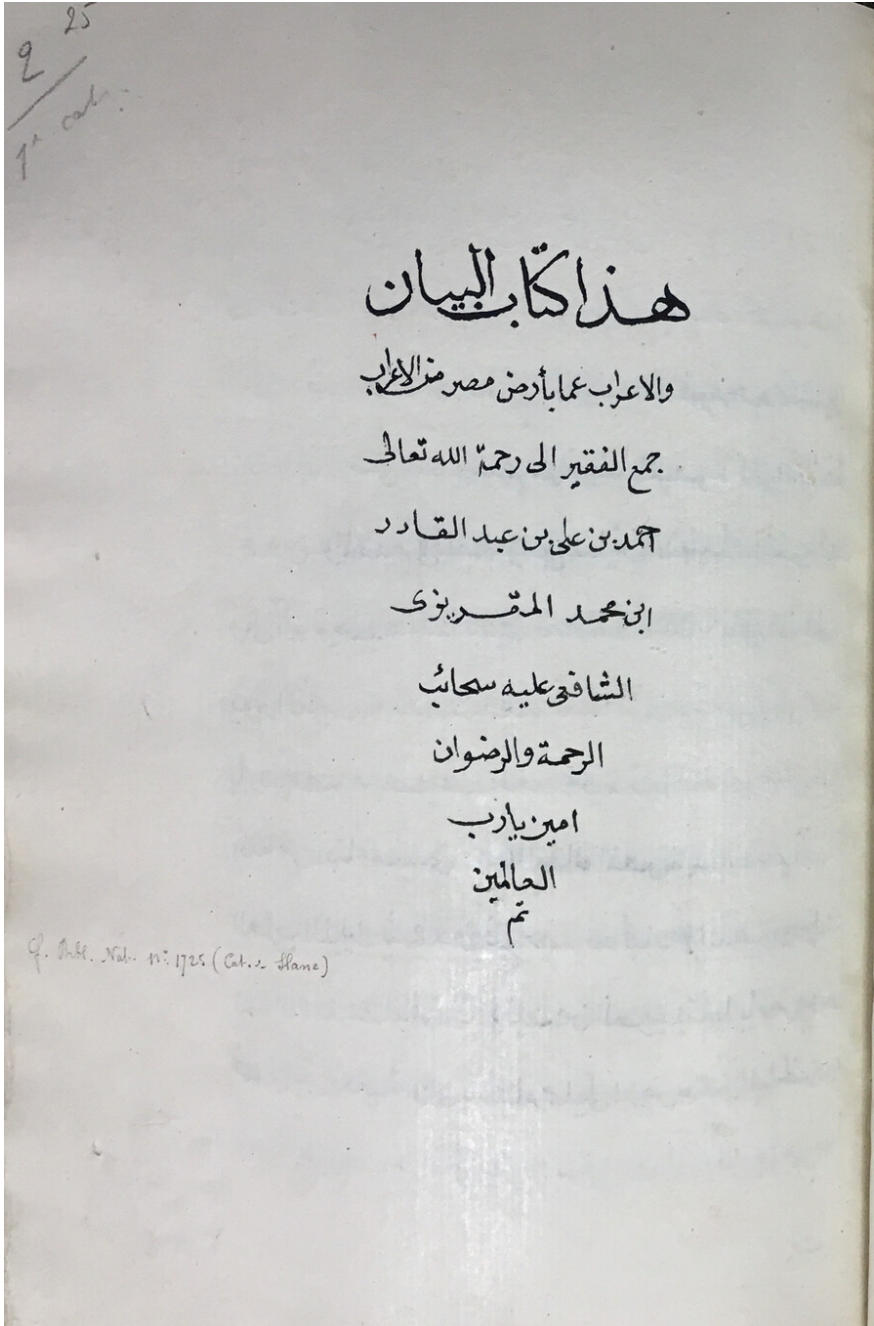 25
2
1r cat.
هذا كتاب البيان
والاعراب عما بأرض مصر من الاعراب
جمع الفقير الى رحمة الله تعالى
احمد بن علي بن عبد القادر
ابن محمد المقريزى
الشافعى عليه سحائب
الرحمة والرضوان
امين يارب
العالمين
تم
cf. Bibl. Nat. nº 1725 (Cat. de Slane)